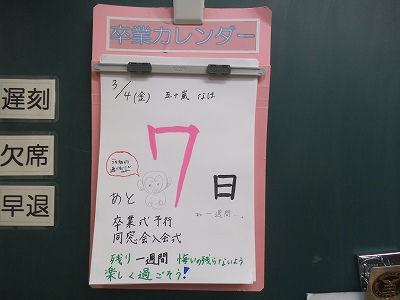 卒業カレンダー
3/4(金) 五十嵐 なほ
あと 7日
卒業式予行
同窓会入会式
残り一週間 悔いの残らないよう
楽しく過ごそう!
遅刻
欠席
早退